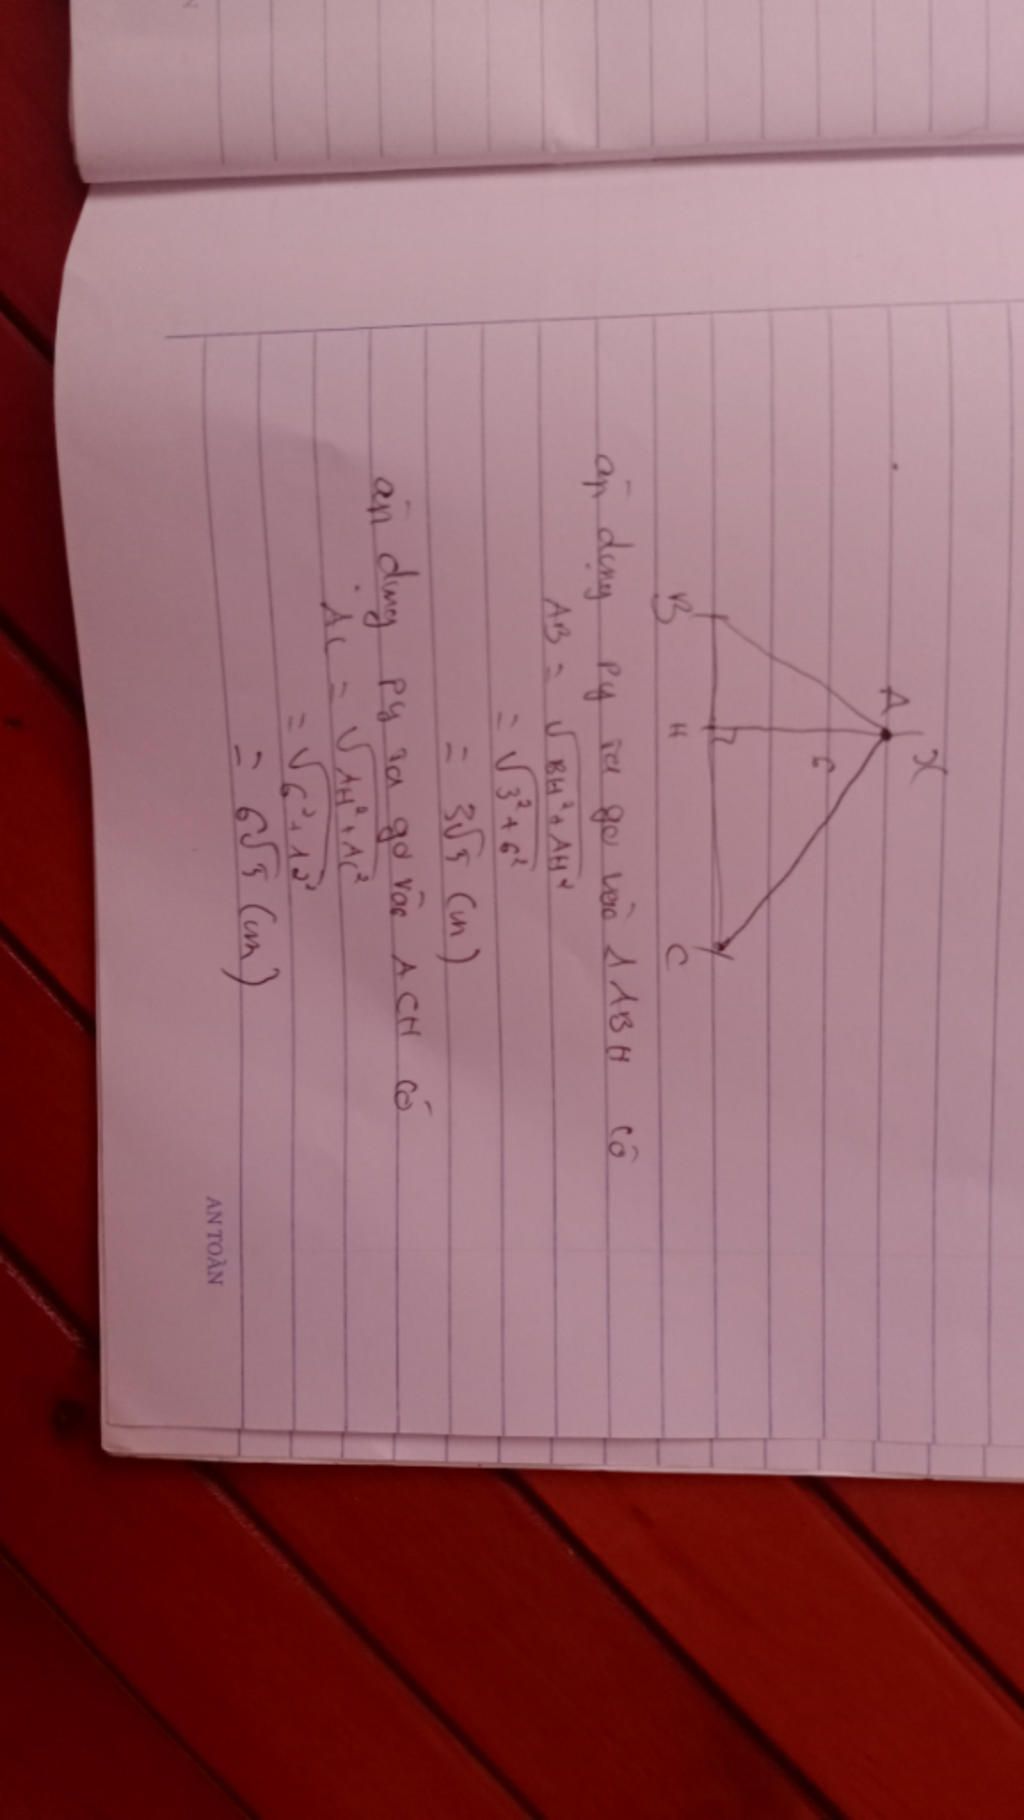 X
A
6
B H C
áp dụng Py ta go vào ΔABH có
AB = √BH² + AH²
= √3² + 6²
= 3√5 (cm)
áp dụng Py ta go vào ACH có
AC = √AH² + AC²
= √6² + 12²
= 6√5 (cm)
AN TOÀN